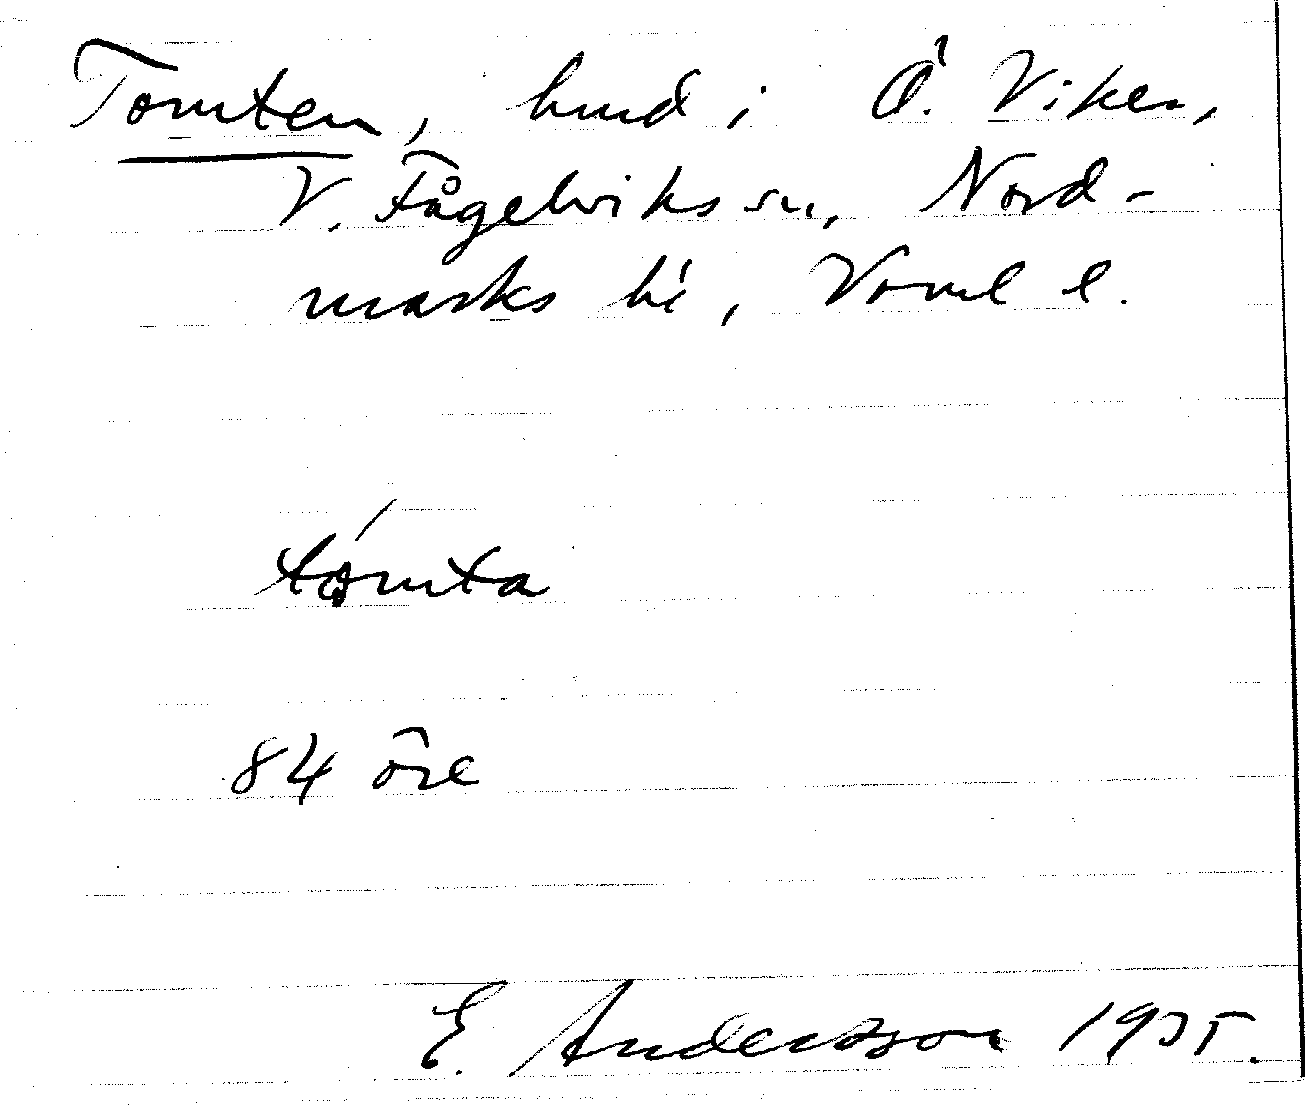 Tomten, hmd i Ö. Viker,
V. Fågelviks sn, Nord-
marks hd, Värml l.
tómta
84 öre
E. Andersson 1935.